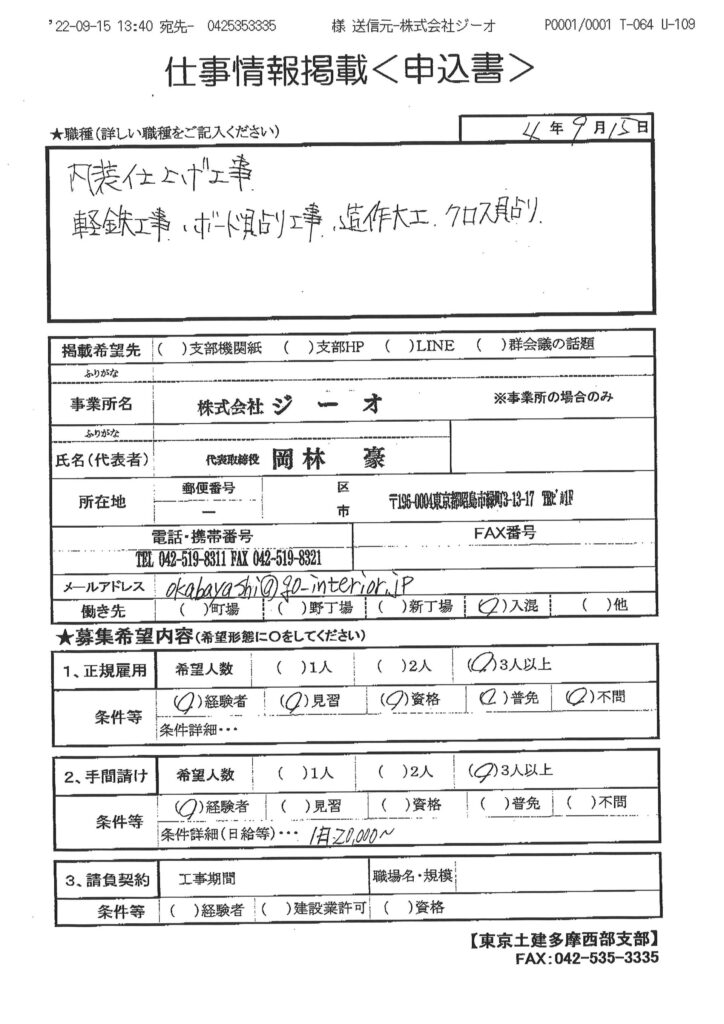 '22-09-15 13:40 宛先- 0425353335 様 送信元-株式会社ジーオ P0001/0001 T-064 U-109
仕事情報掲載＜申込書＞
★職種(詳しい職種をご記入ください)
4年9月15日
内装仕上げ工事
軽鉄工事、ボード貼り工事、造作大工、クロス貼り
掲載希望先 ( )支部機関紙 ( )支部HP ( )LINE ( )群会議の話題
ふりがな
事業所名 株式会社 ジーオ ※事業所の場合のみ
ふりがな
氏名(代表者) 代表取締役 岡林 豪
所在地 郵便番号 ー 区 市 〒196-0004東京都昭島市緑町3-13-17 TRビル1F
電話・携帯番号 FAX番号
TEL 042-519-8311 FAX 042-519-8321
メールアドレス okabayashi@go-interior.jp
働き先 ( )町場 ( )野丁場 ( )新丁場 (○)入混 ( )他
★募集希望内容(希望形態に〇をしてください)
1、正規雇用 希望人数 ( )1人 ( )2人 (○)3人以上
条件等 (○)経験者 (○)見習 (○)資格 (○)普免 (○)不問
条件詳細・・・
2、手間請け 希望人数 ( )1人 ( )2人 (○)3人以上
条件等 (○)経験者 ( )見習 ( )資格 ( )普免 ( )不問
条件詳細(日給等)・・・ 20,000〜
3、請負契約 工事期間 職場名・規模
条件等 ( )経験者 ( )建設業許可 ( )資格
【東京土建多摩西部支部】
FAX:042-535-3335